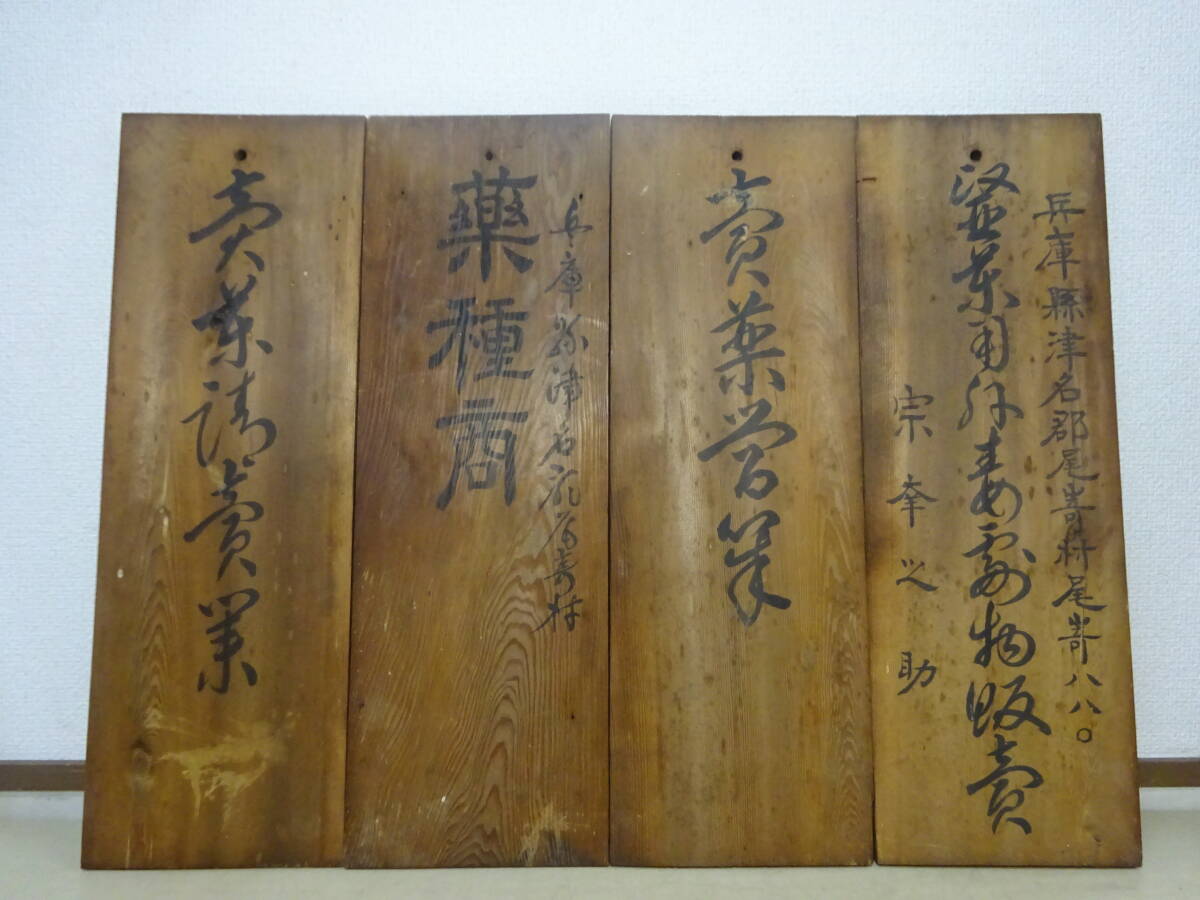 兵庫縣津名郡尾嵜村尾嵜八八〇
醫薬用外毒劇物販賣
宗幸之助
賣薬営業
兵庫縣津名郡尾嵜村
藥種商
賣薬請賣業